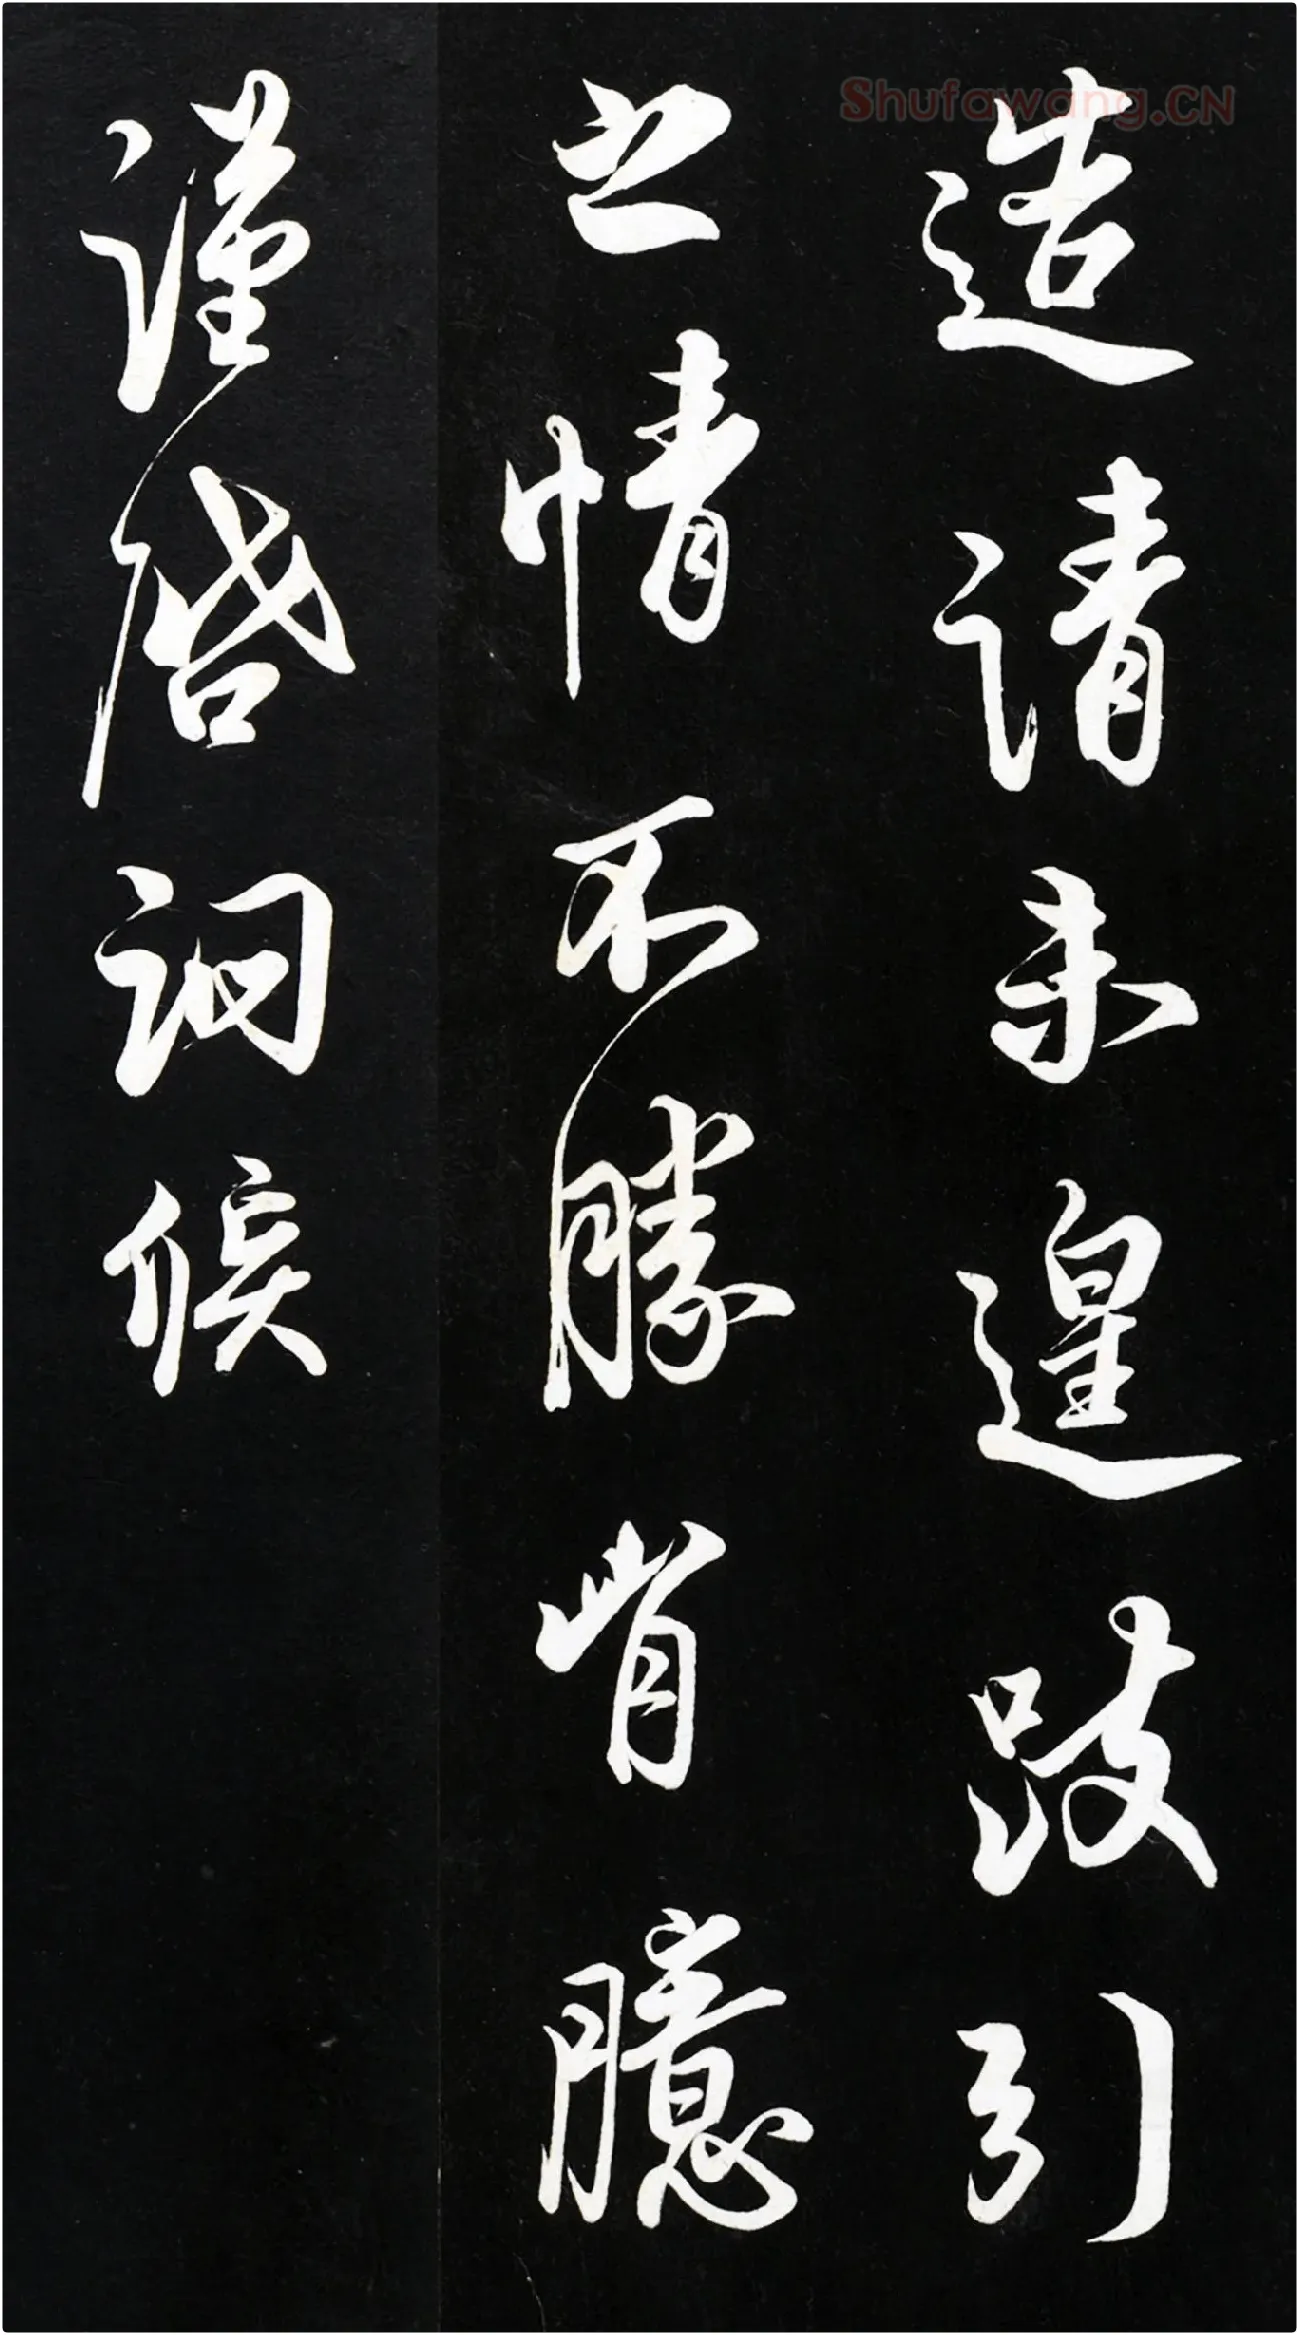 造请未遑跂引
之情不勝胷臆
謹啓詞候
Shufawang.CN